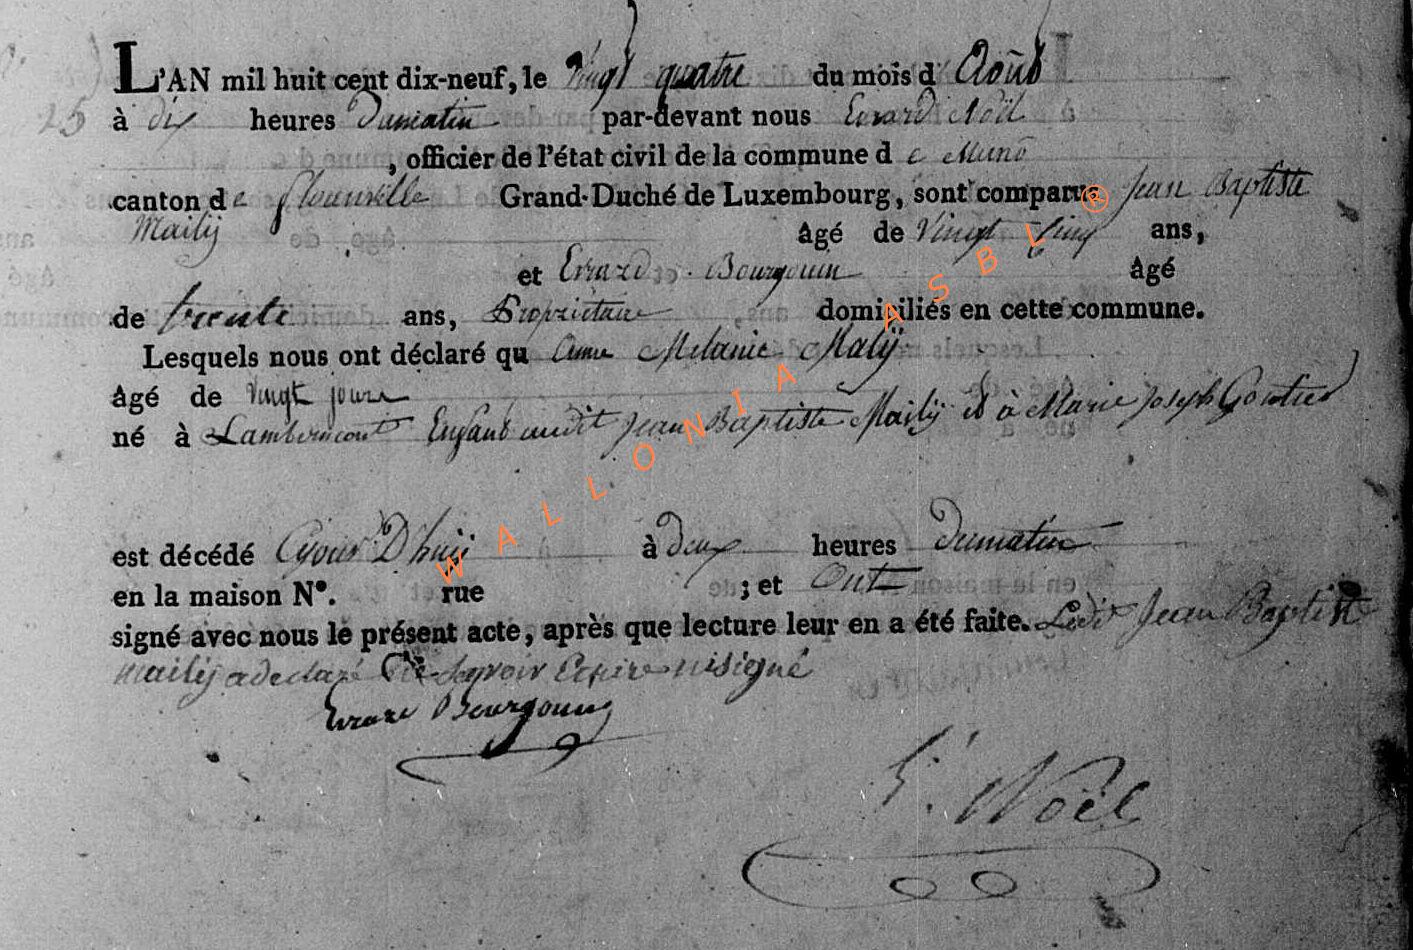 L'AN mil huit cent dix-neuf, le Vingt quatre du mois d'Aoüt
25 à dix heures Dumatin par-devant nous Evrard Noël
, officier de l'état civil de la commune de Muno
canton de flourville Grand-Duché de Luxembourg, sont comparus Jean Baptiste
Mailÿ âgé de Vingt Cinq ans,
et Evrard Bourgouin âgé
de trente ans, Propriétaire domiciliés en cette commune.
Lesquels nous ont déclaré qu Anne Melanie Malÿ
âgé de Vingt jours
né à Lambermont Enfant audit Jean Baptiste Mailÿ et à Marie Joseph
est décédé Cejour D'huÿ à deux heures dumatin
en la maison N°. rue ; et Ont
signé avec nous le présent acte, après que lecture leur en a été faite. Ledit Jean Baptiste
mailÿ adeclaré Ne Savoir Ecrire nisigné
Evrard Bourgouin
E. Noël
WALLONIA ASBL ®